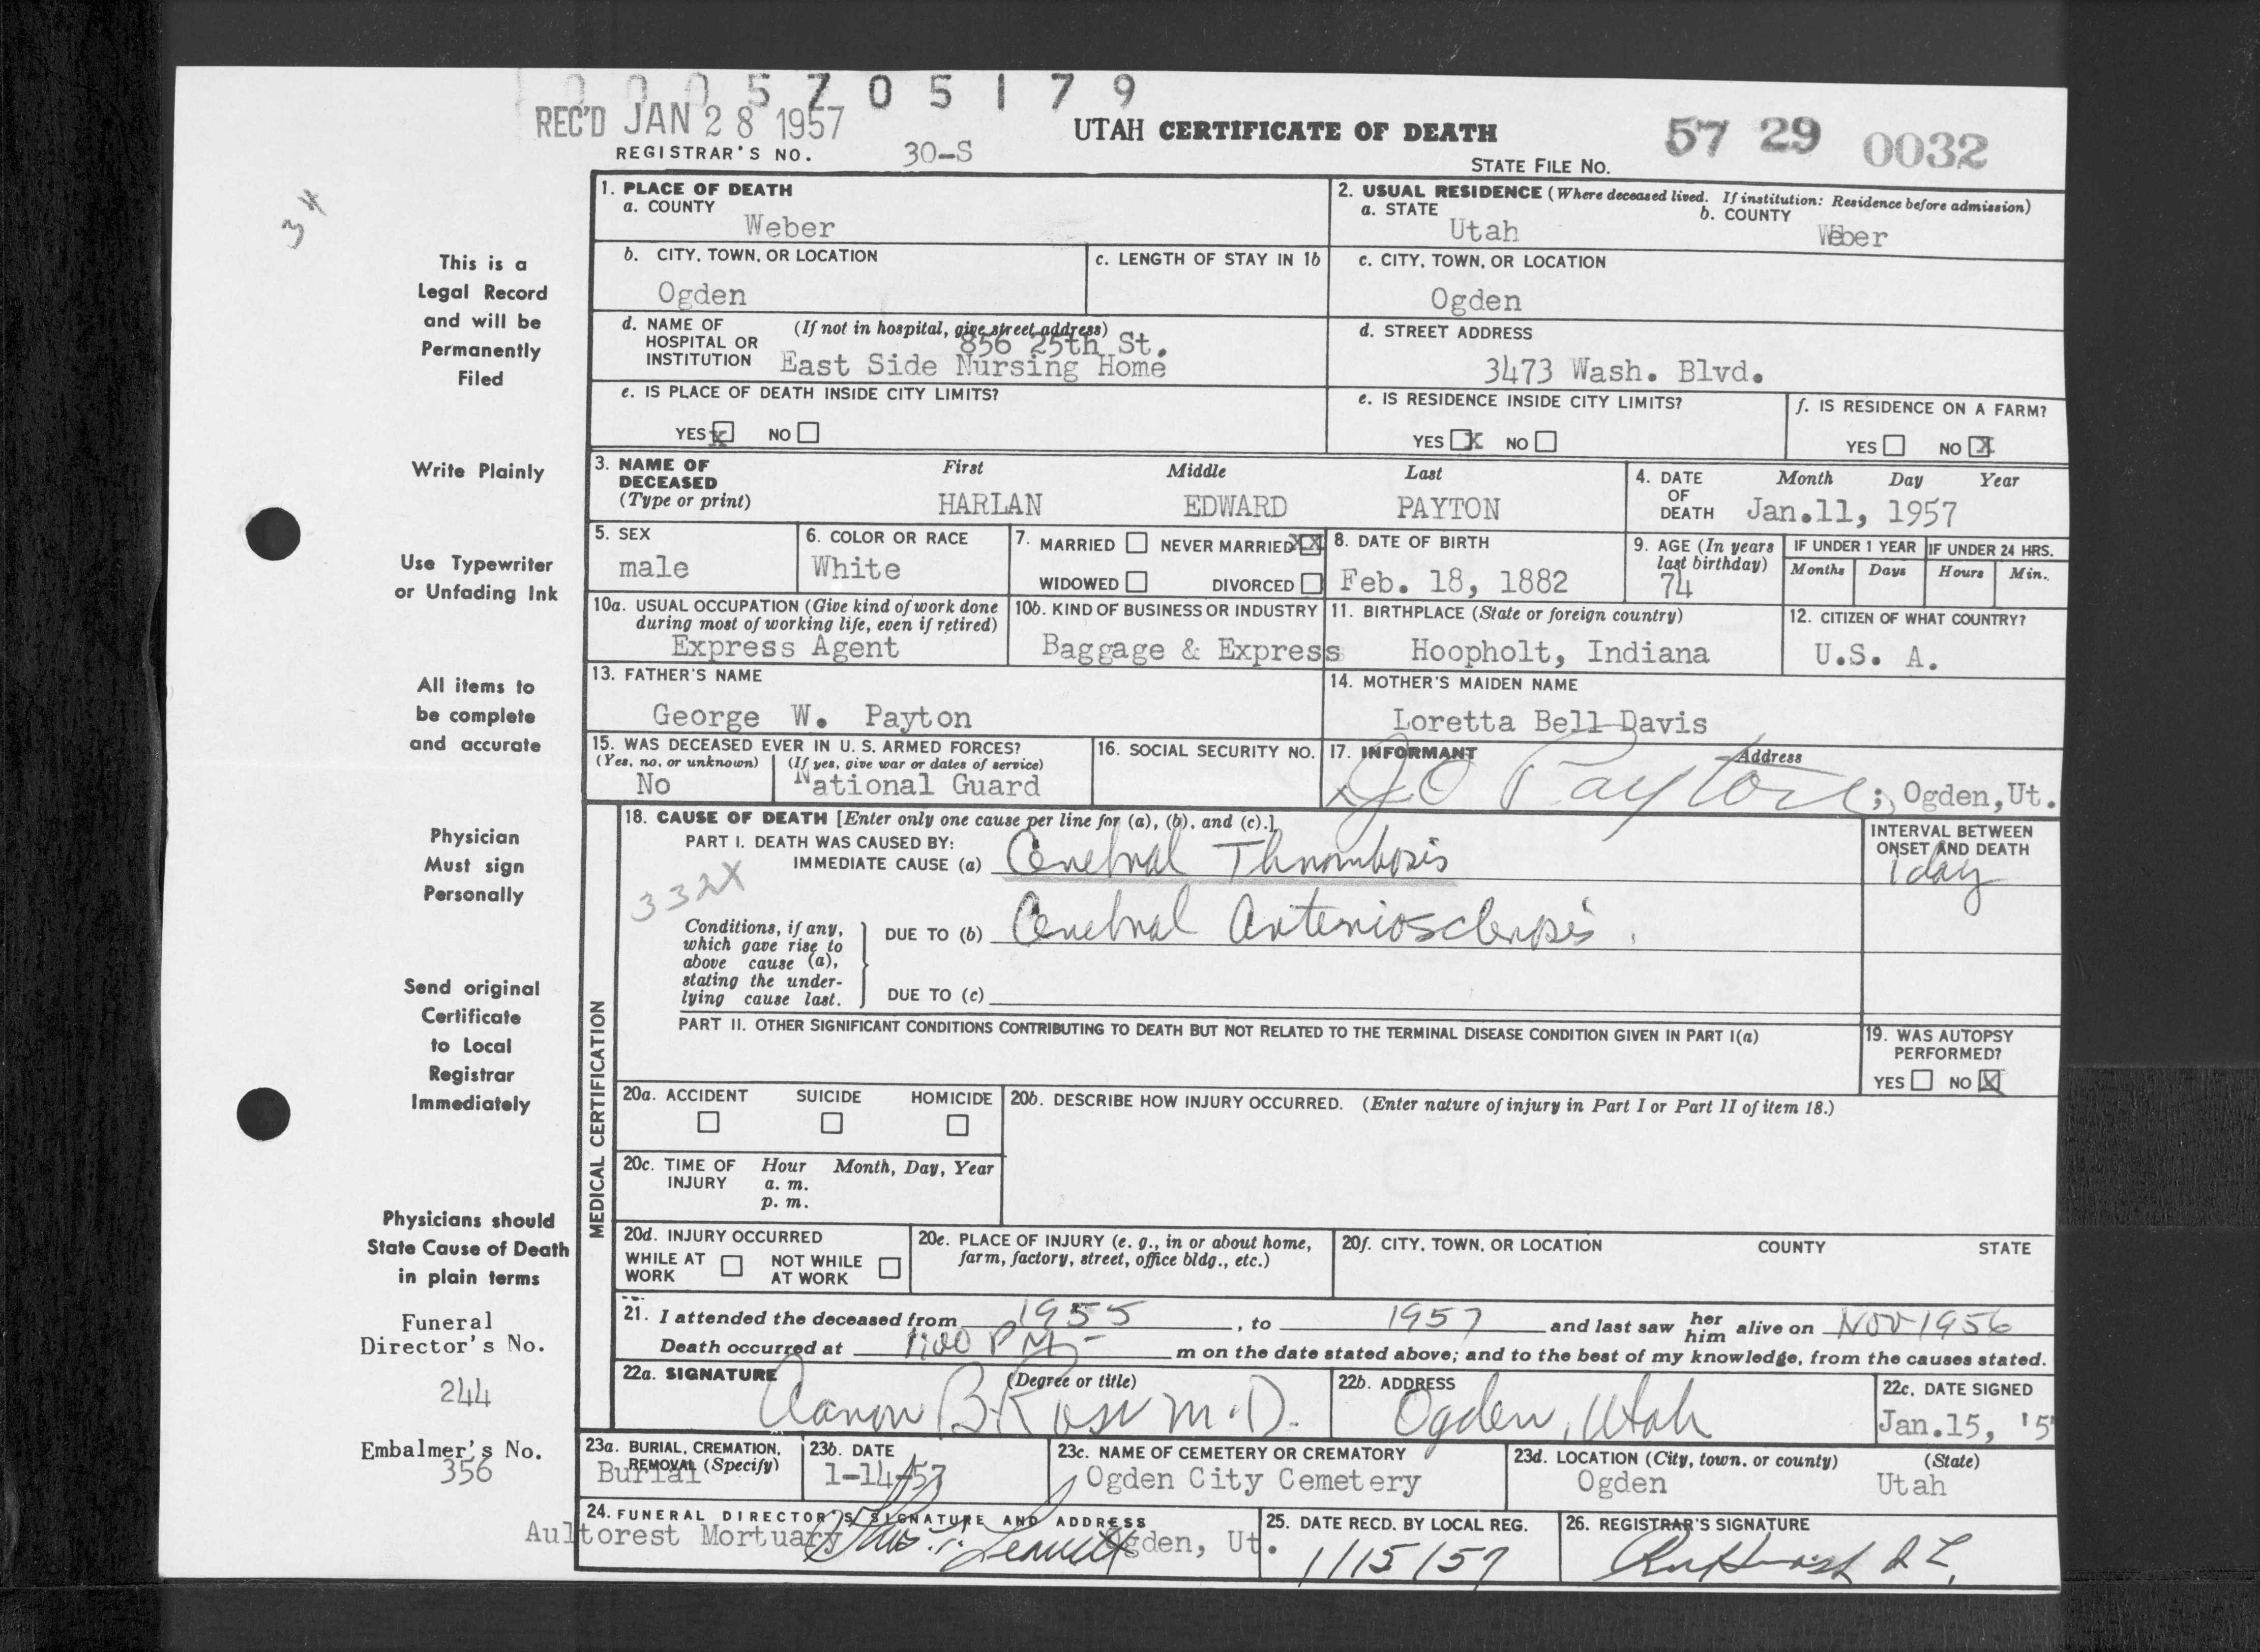 0 0 0 5 7 0 5 1 7 9
REC'D JAN 28 1957
UTAH CERTIFICATE OF DEATH
57 29 0032
REGISTRAR'S NO. 30-S
STATE FILE NO.
34
This is a
Legal Record
and will be
Permanently
Filed
Write Plainly
Use Typewriter
or Unfading Ink
All items to
be complete
and accurate
Physician
Must sign
Personally
Send original
Certificate
to Local
Registrar
Immediately
Physicians should
State Cause of Death
in plain terms
Funeral
Director's No.
244
Embalmer's No.
356
1. PLACE OF DEATH
a. COUNTY
Weber
2. USUAL RESIDENCE (Where deceased lived. If institution: Residence before admission)
a. STATE b. COUNTY
Utah Weber
b. CITY, TOWN, OR LOCATION
Ogden
c. LENGTH OF STAY IN 1b
c. CITY, TOWN, OR LOCATION
Ogden
d. NAME OF HOSPITAL OR INSTITUTION
(If not in hospital, give street address)
856 25th St.
East Side Nursing Home
d. STREET ADDRESS
3473 Wash. Blvd.
e. IS PLACE OF DEATH INSIDE CITY LIMITS?
YES X NO
e. IS RESIDENCE INSIDE CITY LIMITS?
YES X NO
f. IS RESIDENCE ON A FARM?
YES NO X
3. NAME OF DECEASED (Type or print)
First Middle Last
HARLAN EDWARD PAYTON
4. DATE OF DEATH
Month Day Year
Jan.11, 1957
5. SEX
male
6. COLOR OR RACE
White
7. MARRIED NEVER MARRIED XX
WIDOWED DIVORCED
8. DATE OF BIRTH
Feb. 18, 1882
9. AGE (In years last birthday)
74
IF UNDER 1 YEAR
Months Days
IF UNDER 24 HRS.
Hours Min.
10a. USUAL OCCUPATION (Give kind of work done
during most of working life, even if retired)
Express Agent
10b. KIND OF BUSINESS OR INDUSTRY
Baggage & Express
11. BIRTHPLACE (State or foreign country)
Hoopholt, Indiana
12. CITIZEN OF WHAT COUNTRY?
U.S. A.
13. FATHER'S NAME
George W. Payton
14. MOTHER'S MAIDEN NAME
Loretta Bell Davis
15. WAS DECEASED EVER IN U. S. ARMED FORCES?
(Yes, no, or unknown) (If yes, give war or dates of service)
No National Guard
16. SOCIAL SECURITY NO.
17. INFORMANT Address
Payton ; Ogden, Ut.
MEDICAL CERTIFICATION
18. CAUSE OF DEATH [Enter only one cause per line for (a), (b), and (c).]
PART I. DEATH WAS CAUSED BY:
IMMEDIATE CAUSE (a) Cerebral Thrombosis
332X
Conditions, if any,
which gave rise to
above cause (a),
stating the under-
lying cause last.
DUE TO (b) Cerebral Arteriosclerosis.
DUE TO (c)
INTERVAL BETWEEN
ONSET AND DEATH
1 day
PART II. OTHER SIGNIFICANT CONDITIONS CONTRIBUTING TO DEATH BUT NOT RELATED TO THE TERMINAL DISEASE CONDITION GIVEN IN PART I(a)
19. WAS AUTOPSY
PERFORMED?
YES NO X
20a. ACCIDENT SUICIDE HOMICIDE
20b. DESCRIBE HOW INJURY OCCURRED. (Enter nature of injury in Part I or Part II of item 18.)
20c. TIME OF INJURY
Hour Month, Day, Year
a. m.
p. m.
20d. INJURY OCCURRED
WHILE AT WORK NOT WHILE AT WORK
20e. PLACE OF INJURY (e. g., in or about home,
farm, factory, street, office bldg., etc.)
20f. CITY, TOWN, OR LOCATION COUNTY STATE
21. I attended the deceased from 1955, to 1957 and last saw her him alive on Nov 1956
Death occurred at 1:00 PM m on the date stated above; and to the best of my knowledge, from the causes stated.
22a. SIGNATURE (Degree or title)
Aaron B Ross M.D.
22b. ADDRESS
Ogden, Utah
22c. DATE SIGNED
Jan.15, '5
23a. BURIAL, CREMATION,
REMOVAL (Specify)
Burial
23b. DATE
1-14-57
23c. NAME OF CEMETERY OR CREMATORY
Ogden City Cemetery
23d. LOCATION (City, town, or county) (State)
Ogden Utah
24. FUNERAL DIRECTOR'S SIGNATURE AND ADDRESS
Aultorest Mortuary Ogden, Ut.
25. DATE RECD. BY LOCAL REG.
1/15/57
26. REGISTRAR'S SIGNATURE